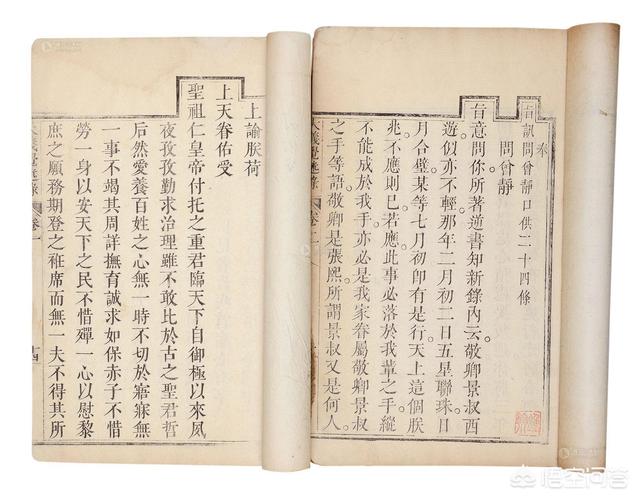 奉
旨訊問曾靜口供二十四條
問曾靜
旨意問你所著逆書知新錄內云敬卿景叔西
遊似亦不輕那年二月初二日五星聯珠日
月合璧某等七月初卽有是行天上這個朕
兆不應則已若應此事必落於我輩之手縱
不能成於我手亦必是我家眷屬敬卿景叔
之手等語敬卿是張熙所謂景叔又是何人
大義覺迷錄 卷
上諭朕荷
上天眷佑受
聖祖仁皇帝付托之重君臨天下自御極以來夙
夜孜孜勤求治理雖不敢比於古之聖君哲
后然愛養百姓之心無一時不切於寤寐無
一事不竭其周詳撫育誠求如保赤子不惜
勞一身以安天下之民不惜殫一心以慰黎
庶之願務期登之衽席而無一夫不得其所
大義覺迷錄 卷一
悟空问答